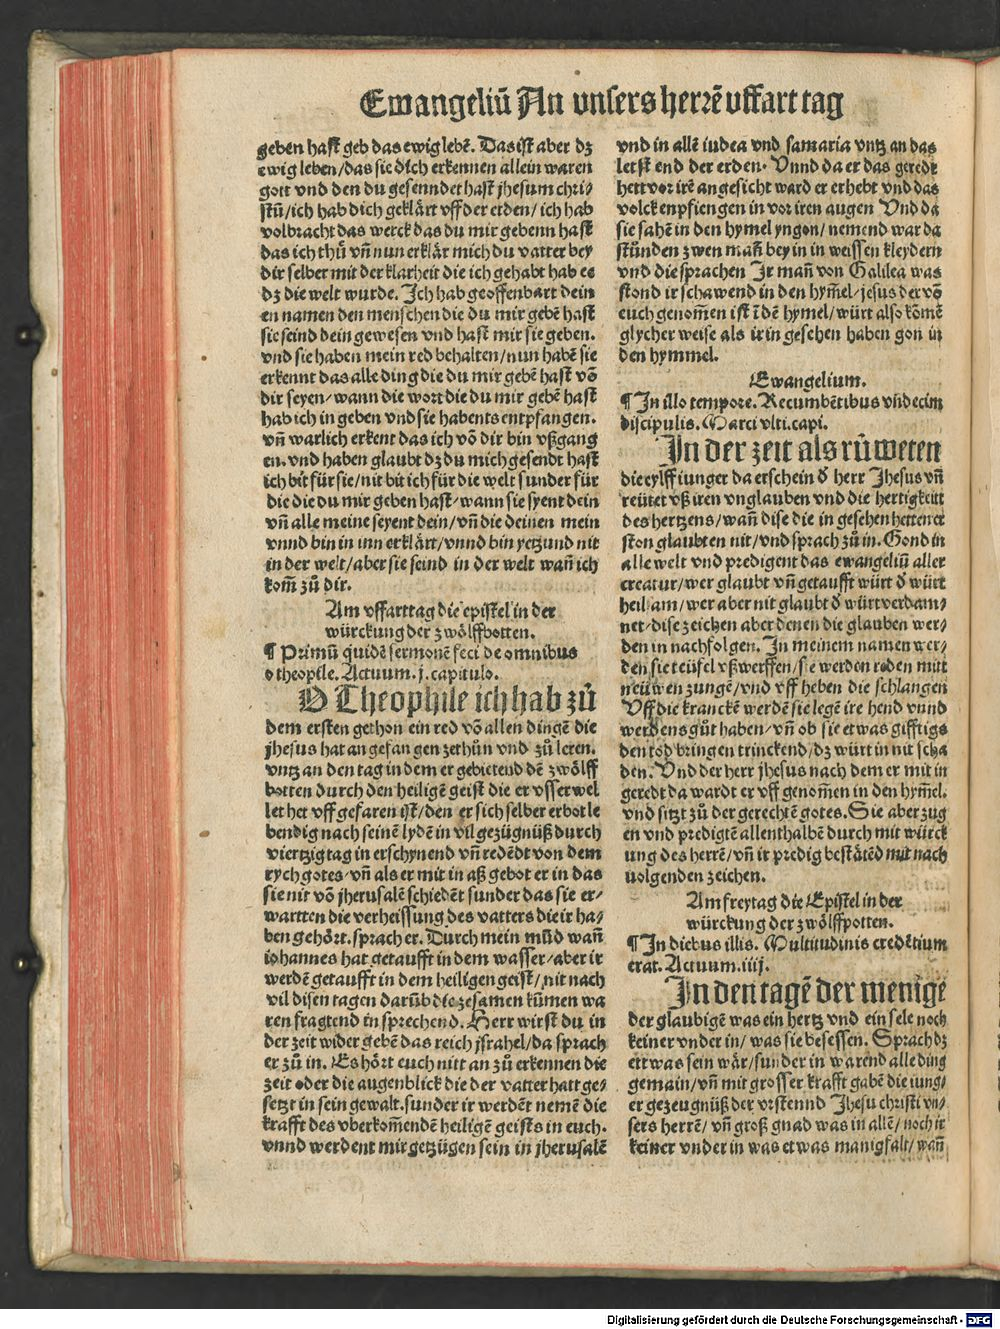 Ewangeliū An unsers herrē uffart tag
geben hast geb das ewig lebē. Das ist aber dz
ewig leben/das sie dich erkennen allein waren
gott vnd den du gesenndet hast jhesum chri/
stū/ich hab dich geklärt vff der erden/ich hab
volbracht das werck das du mir gebenn hast
das ich thů vn̄ nun erklär mich du vatter bey
dir selber mit der klarheit die ich gehabt hab ee
dz die welt wurde. Ich hab geoffenbart dein
en namen den menschen die du mir gebē hast
sie seind dein gewesen vnd hast mir sie geben.
vnd sie haben mein red behalten/nun habē sie
erkennt das alle ding die du mir gebē hast vō
dir seyen/wann die wort die du mir gebē hast
hab ich in geben vnd sie habents entpfangen.
vn̄ warlich erkent das ich vō dir bin vßgang
en. vnd haben glaubt dz du mich gesendt hast
ich bit für sie/nit bit ich für die welt sunder für
die die du mir geben hast/wann sie syent dein
vn̄ alle meine seyent dein/vn̄ die deinen mein
vnnd bin in inn erklärt/vnnd bin yetzund nit
in der welt/aber sie seind in der welt wan̄ ich
kom̄ zů dir.
Am vffarttag die epistel in der
würckung der zwölffbotten.
¶ Primū quidē sermonē feci de omnibus
o theopile. Actuum. j. capitulo.
O Theophile ich hab zů
dem ersten gethon ein red vō allen dingē die
jhesus hat angefangen zethůn vnd zů leren.
vntz an den tag in dem er gebietend dē zwölff
botten durch den heiligē geist die er vsserwel
let het vff gefaren ist/den er sich selber erbot le
bendig nach seinē lydē in vil gezügnüß durch
viertzig tag in erschynend vn̄ redēdt von dem
rych gotes/vn̄ als er mit in aß gebot er in das
sie nit vō jherusalē schiedēt sunder das sie er/
wartten die verheissung des vatters die ir ha/
ben gehört. sprach er. Durch mein mūd wan̄
iohannes hat getaufft in dem wasser/aber ir
werdē getaufft in dem heiligen geist/nit nach
vil disen tagen darūb die zesamen kūmen wa
ren fragtend in sprechend. Herr wirst du in
der zeit wider gebē das reich jsrahel/da sprach
er zů in. Es hört euch nitt an zů erkennen die
zeit oder die augenblick die der vatter hatt ge/
setzt in sein gewalt. sunder ir werdēt nemē die
krafft des vberkom̄endē heiligē geists in euch.
vnnd werdent mir getzügen sein in jherusalē
vnd in allē iudea vnd samaria vntz an das
letst end der erden. Vnnd da er das geredt
hett vor irē angesicht ward er erhebt vnd das
volck enpfiengen in vor iren augen Vnd da
sie sahē in den hymel yngon/nemend war da
stůnden zwen man̄ bey in in weissen kleydern
vnd die sprachen Ir man̄ von Galilea was
stond ir schawend in den hym̄el/jesus der vō
euch genom̄en ist ī dē hymel/würt also kōmē
glycher weise als ir in gesehen haben gon in
den hymmel.
Ewangelium.
¶ In illo tempore. Recumbētibus vn̄decim
discipulis. Marci vlti. capi.
In der zeit als růweten
die eylff iunger da erschein d' herr Jhesus vn̄
reütet vß iren vnglauben vnd die hertigkeitt
des hertzens/wan̄ dise die in gesehen hetten er
ston glaubten nit/vnd sprach zů in. Gond in
alle welt vnd predigent das ewangeliū aller
creatur/wer glaubt vn̄ getaufft würt d' würt
heilsam/wer aber nit glaubt d' würt verdam/
net/dise zeichen aber denen die glauben wer/
den in nachfolgen. In meinem namen wer/
den sie teüfel vßwerffen/sie werden reden mitt
neüwen zungē/vnd vff heben die schlangen
Vff die kranckē werdē sie legē ire hend vnnd
werdens gůt haben/vn̄ ob sie etwas gifftigs
den tod bringen trinckend/dz würt in nit scha
den. Vnd der herr jhesus nach dem er mit in
geredt da wardt er vff genom̄en in den hym̄el.
vnd sitzt zů der gerechtē gotes. Sie aber zug
en vnd predigtē allenthalbē durch mit würck
ung des herrē/vn̄ ir predig bestätēd mit nach
uolgenden zeichen.
Am freytag die Epistel in der
würckung der zwölffpotten.
¶ In diebus illis. Multitudinis credētium
erat. Actuum. iiij.
In den tagē der menige
der glaubigē was ein hertz vnd ein sele noch
keiner vnder in/was sie besessen. Sprach dz
ett was sein wär/sunder in warend alle ding
gemain/vn̄ mit grosser krafft gabē die iung/
er gezeugnüß der vrstennd Jhesu christi vn/
sers herrē/vn̄ groß gnad was in allē/noch ir
keiner vnder in was etwas manigfalt/wan̄
Digitalisierung gefördert durch die Deutsche Forschungsgemeinschaft - DFG